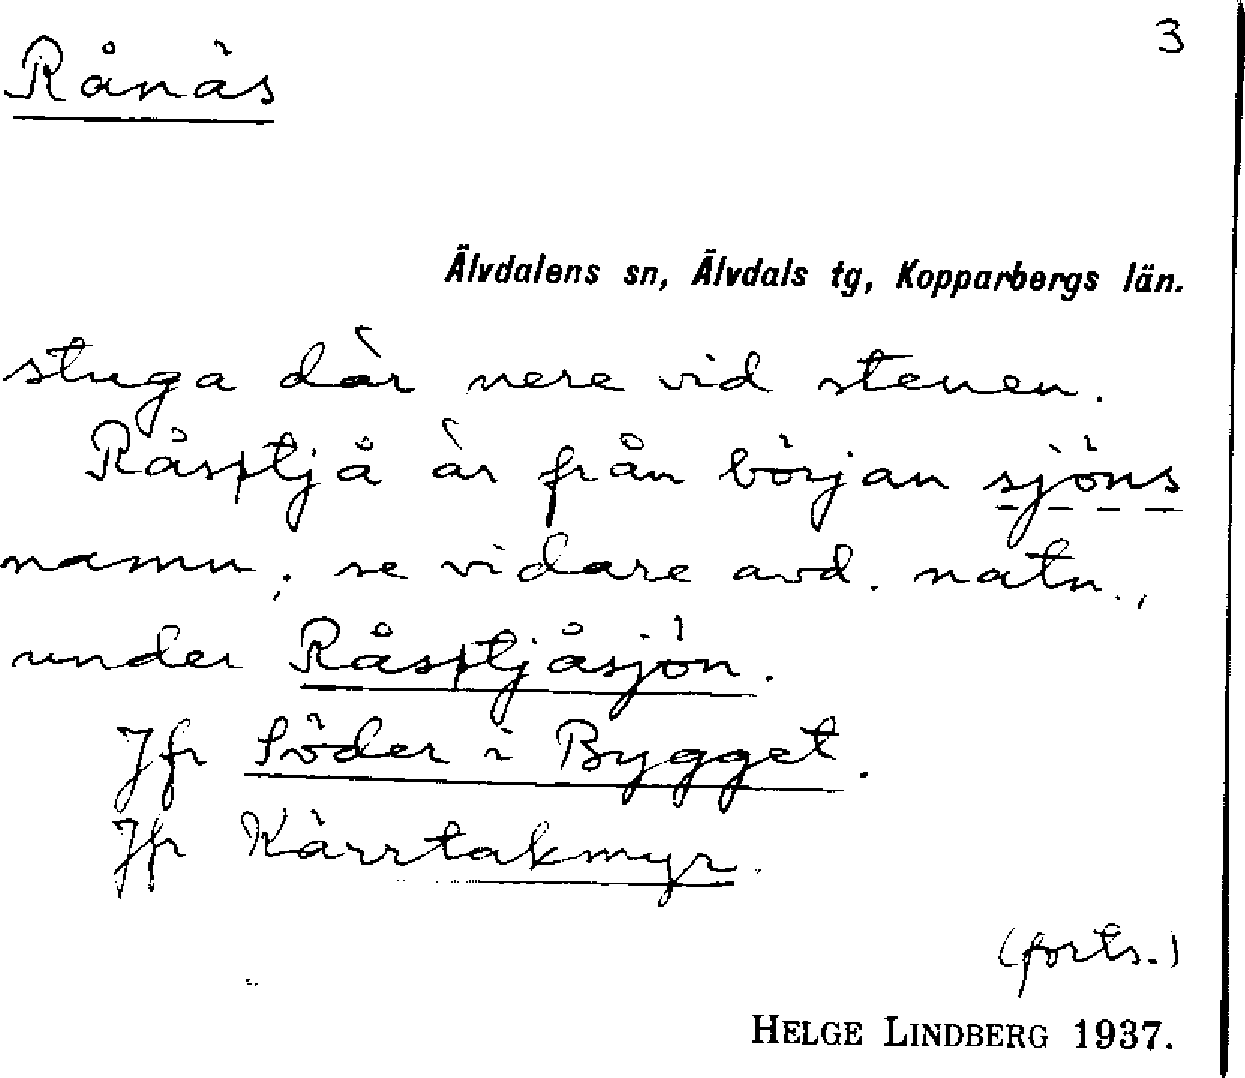 3
Rånäs
Älvdalens sn, Älvdals tg, Kopparbergs län.
stuga där nere vid stenen.
Råsptjå är från början sjöns
namn; se vidare avd. natn.,
under Råsptjåsjön.
Jfr Söder i Bygget.
Jfr Kärrtakmyr.
(forts.)
HELGE LINDBERG 1937.